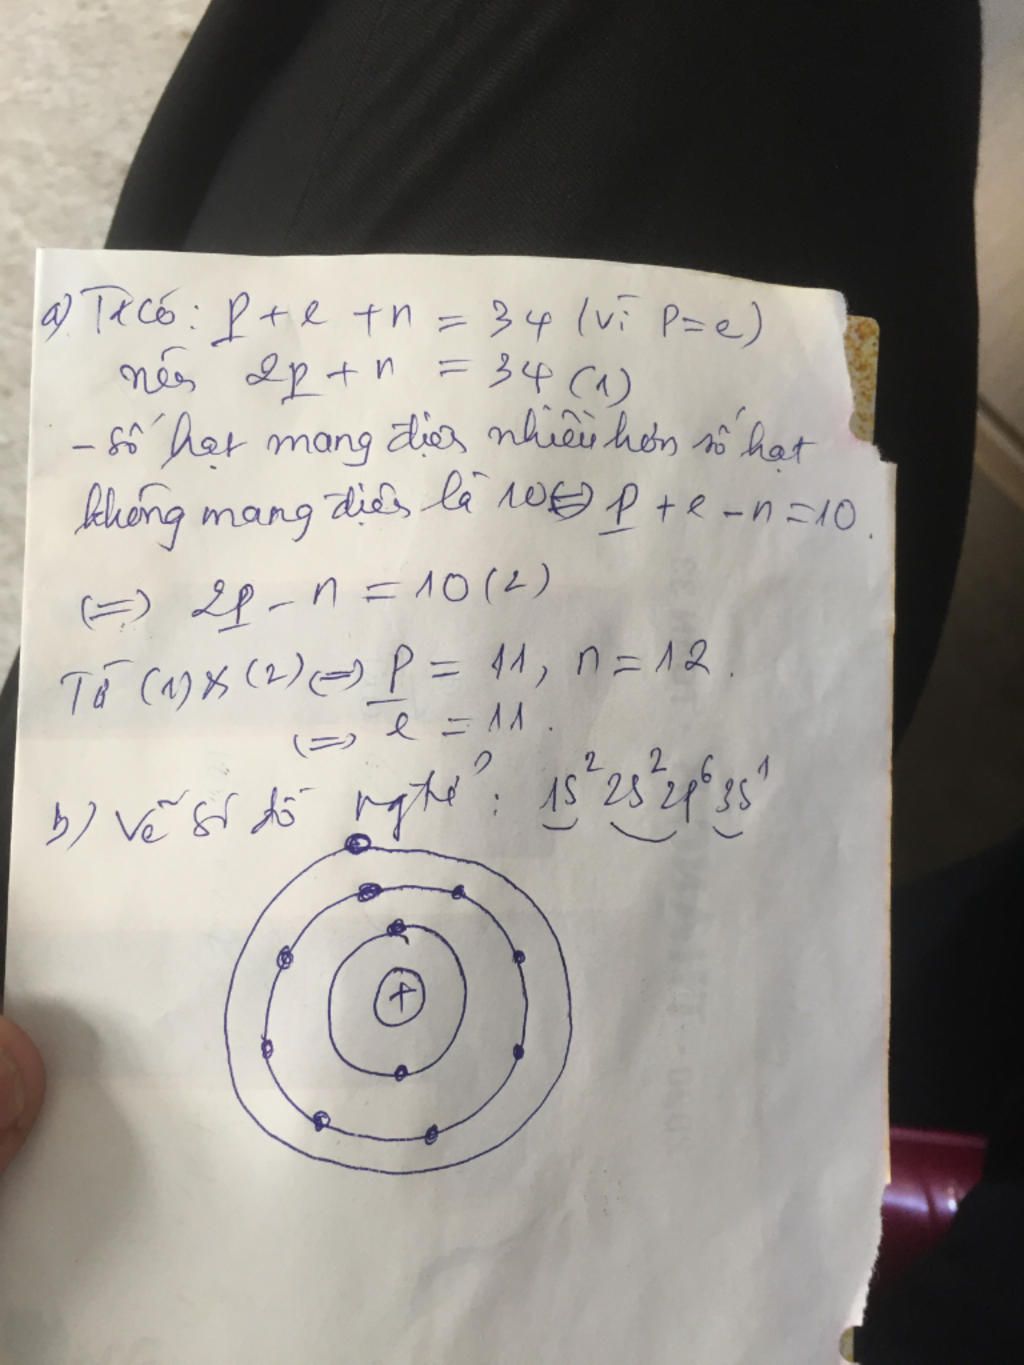 a) Ta có: p + e + n = 34 (vì p = e)
nên 2p + n = 34 (1)
- Số hạt mang điện nhiều hơn số hạt
không mang điện là 10 <=> p + e - n = 10.
(=) 2p - n = 10 (2)
Từ (1) & (2) (=) p = 11, n = 12.
(=) e = 11.
b) Vẽ sơ đồ ngtử: 1s² 2s² 2p⁶ 3s¹
+